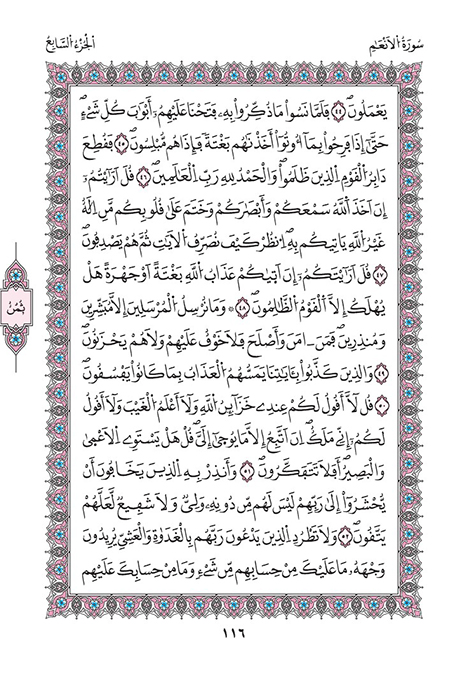 سُورَةُ الْأَنْعَامِ
الْجُزْءُ السَّابِعُ
يَعْمَلُونَۖ ٤٤ فَلَمَّا نَسُواْ مَا ذُكِّرُواْ بِهِۦ فَتَحْنَا عَلَيْهِمُۥٓ أَبْوَٰبَ كُلِّ شَےْءٍ
حَتَّىٰٓ إِذَا فَرِحُواْ بِمَآ أُوتُوٓاْ أَخَذْنَٰهُم بَغْتَةٗ فَإِذَا هُم مُّبْلِسُونَۖ ٤٥ فَقُطِعَ
دَابِرُ الْقَوْمِ الذِينَ ظَلَمُواْۖ وَالْحَمْدُ لِلهِ رَبِّ الْعَٰلَمِينَۖ ٤٦ قُلَ اَرَٰٓيْتُمُۥٓ
إِنَ اَخَذَ اَللَّهُ سَمْعَكُمْ وَأَبْصَٰرَكُمْ وَخَتَمَ عَلَىٰ قُلُوبِكُم مَّنِ اِلَٰهٌ
غَيْرُ اُللَّهِ يَاتِيكُم بِهِۖ اِ۟نظُرْ كَيْفَ نُصَرِّفُ اُلَايَٰتِ ثُمَّ هُمْ يَصْدِفُونَۖ
٤٧ قُلَ اَرَٰٓيْتَكُمُۥٓ إِنَ اَت۪يٰكُمْ عَذَابُ اُللَّهِ بَغْتَةً اَوْ جَهْرَةً هَلْ
يُهْلَكُ إِلَّا اَلْقَوْمُ الظَّٰلِمُونَۖ ٤٨ وَمَا نُرْسِلُ الْمُرْسَلِينَ إِلَّا مُبَشِّرِينَ
وَمُنذِرِينَۖ فَمَنَ ـ امَنَ وَأَصْلَحَ فَلَا خَوْفٌ عَلَيْهِمْ وَلَا هُمْ يَحْزَنُونَۖ
٤٩ وَالذِينَ كَذَّبُواْ بِـَٔايَٰتِنَا يَمَسُّهُمُ الْعَذَابُ بِمَا كَانُواْ يَفْسُقُونَۖ
٥٠ قُل لَّآ أَقُولُ لَكُمْ عِندِے خَزَآئِنُ اُللَّهِ وَلَآ أَعْلَمُ الْغَيْبَ وَلَآ أَقُولُ
لَكُمُۥٓ إِنِّے مَلَكٌۖ اِنَ اَتَّبِعُ إِلَّا مَا يُوح۪ىٰٓ إِلَيَّۖ قُلْ هَلْ يَسْتَوِے اِلَاعْم۪ىٰ
وَالْبَصِيرُۖ أَفَلَا تَتَفَكَّرُونَۖ ٥١ وَأَنذِرْ بِهِ الذِينَ يَخَافُونَ أَنْ
يُّحْشَرُوٓاْ إِلَىٰ رَبِّهِمْ لَيْسَ لَهُم مِّن دُونِهِۦ وَلِيٌّ وَلَا شَفِيعٌ لَّعَلَّهُمْ
يَتَّقُونَۖ ٥٢ وَلَا تَطْرُدِ الذِينَ يَدْعُونَ رَبَّهُم بِالْغَدَوٰةِ وَالْعَشِيِّ يُرِيدُونَ
وَجْهَهُۥ مَا عَلَيْكَ مِنْ حِسَابِهِم مِّن شَےْءٖ وَمَا مِنْ حِسَابِكَ عَلَيْهِم
ثُمُنٌ
١١٦